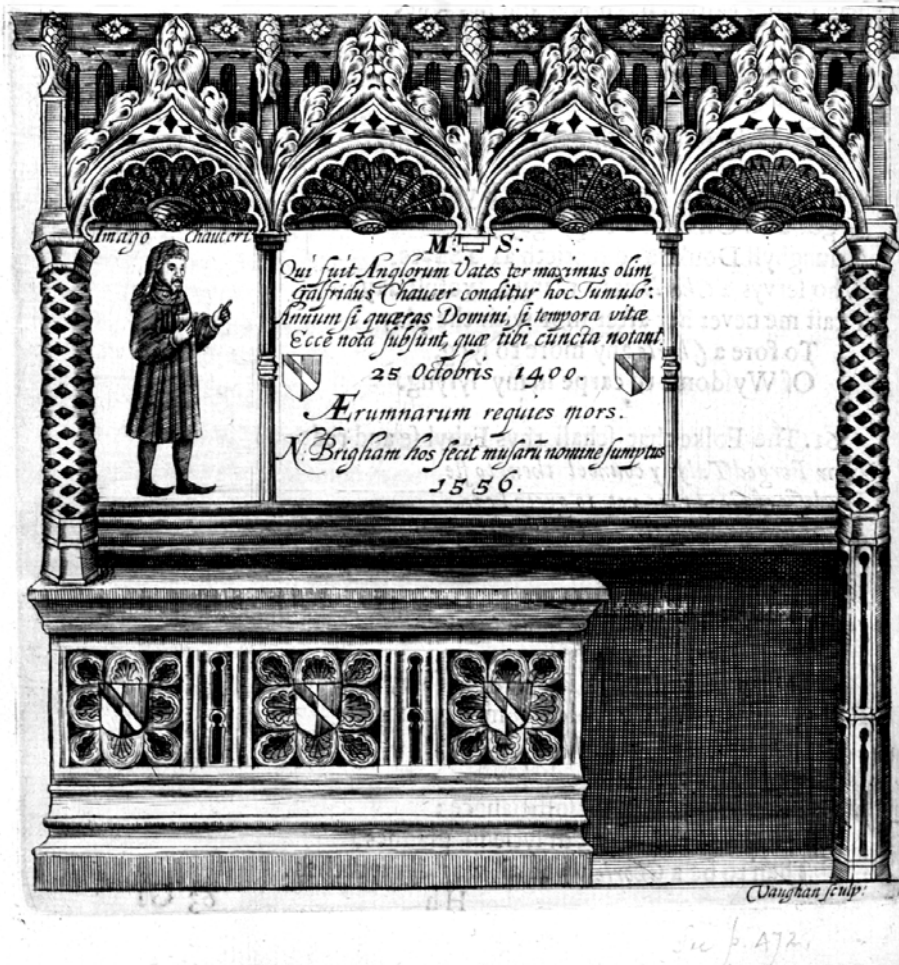 Imago Chauceri
M: S:
Qui fuit Anglorum Vates ter maximus olim
Galfridus Chaucer conditur hoc Tumulo:
Annum si quæras Domini, si tempora vitæ
Ecce nota subsunt, quæ tibi cuncta notant.
25 Octobris 1400.
Ærumnarum requies mors.
N: Brigham hos fecit musarũ nomine sumptus
1556.
Vaughan sculp:
p. 472,